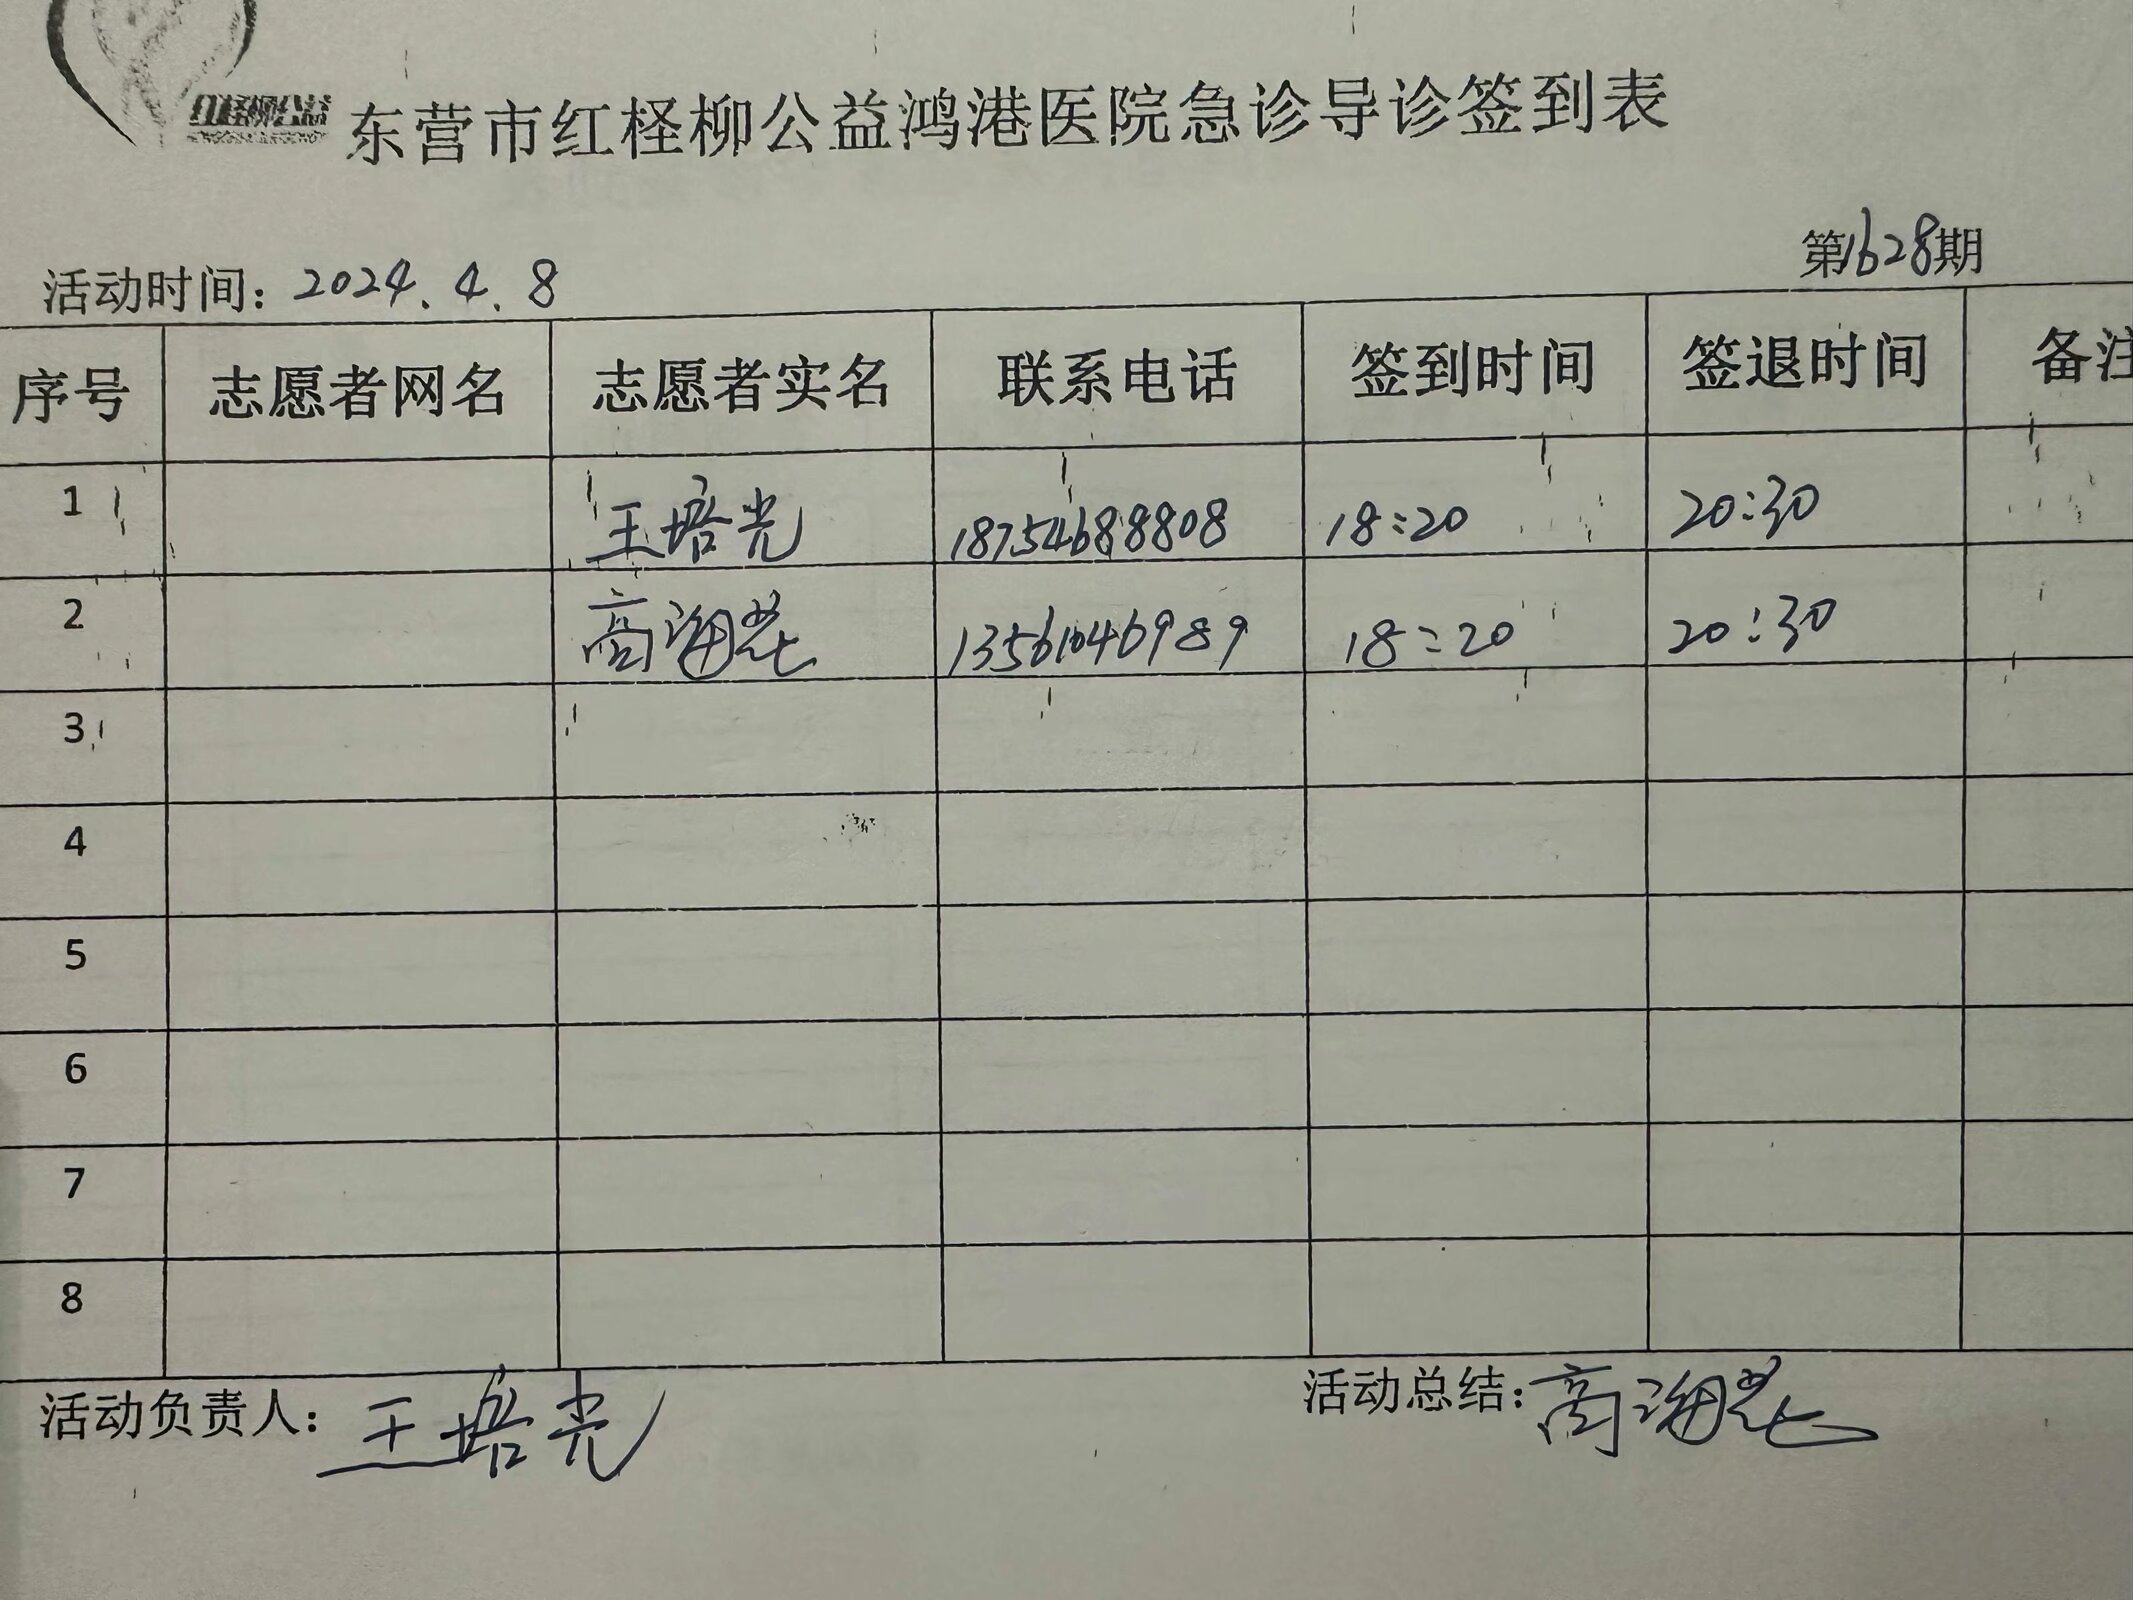 红柽柳公益
东营市红柽柳公益鸿港医院急诊导诊签到表
第1628期
活动时间：2024.4.8
序号 志愿者网名 志愿者实名 联系电话 签到时间 签退时间 备注
1 王培光 18754688808 18:20 20:30
2 高海花 13561046989 18:20 20:30
3
4
5
6
7
8
活动负责人：王培光 活动总结：高海花